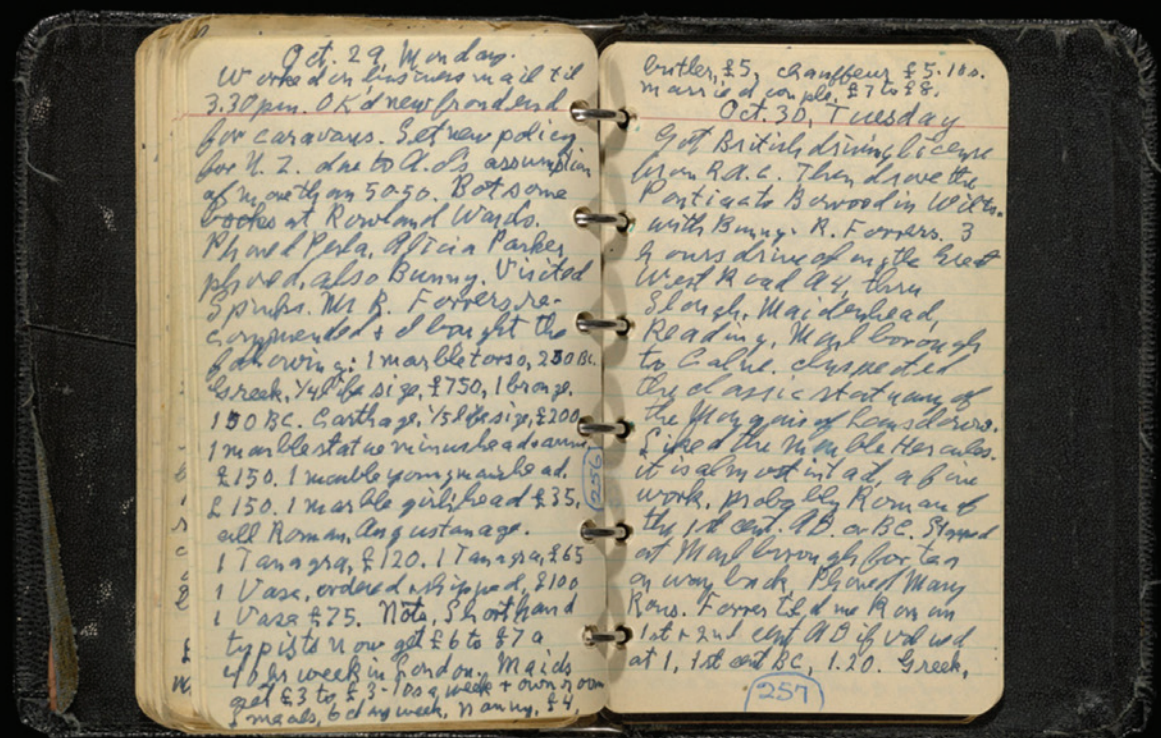 Oct. 29, Monday.
Worked on business mail til
3.30 pm. OK'd new front end
for caravans. Set new policy
for N. Z. due to A.O's assumption
of more than 50-50. Bot some
books at Rowland Wards.
Phoned Perla, Alicia Parker
phoned, also Bunny. Visited
Spinks. Mr R. Forrers re-
commended & I bought the
following: 1 marble torso, 230 BC.
Greek, 1/4 life size, £750, 1 bronze.
150 BC. Carthage, 1/5 life size, £200
1 marble statue minus head & arms,
£150. 1 marble young man's head.
£150. 1 marble girl's head £35,
all Roman, Augustan age.
1 Tanagra, £120. 1 Tanagra, £65
1 Vase, ordered & shipped, £100
1 Vase £75. Note, Shorthand
typists now get £6 to £7 a
40 hr week in London. Maids
get £3 to £3-10s a week + own room
& meals, 6 day week, nanny, £4,
256
butler, £5, chauffeur £5.10s.
married couple, £7 to £8.
Oct. 30, Tuesday
Got British driving license
from R.A.C. Then drove the
Pontiac to Bowood in Wilts.
with Bunny & R. Forrers. 3
hours drive along the Great
West Road A4, thru
Slough, Maidenhead,
Reading, Marlborough
to Calne. Inspected
the classic statuary of
the Marquis of Lansdowne.
Liked the Marble Hercules.
it is almost intact, a fine
work, probably Roman of
the 1st cent. AD. or BC. Stopped
at Marlborough for tea
on way back, Phoned Mary
Rons. Forrer told me Roman
1st & 2nd cent AD if valued
at 1, 1st cent BC, 1.20. Greek,
257